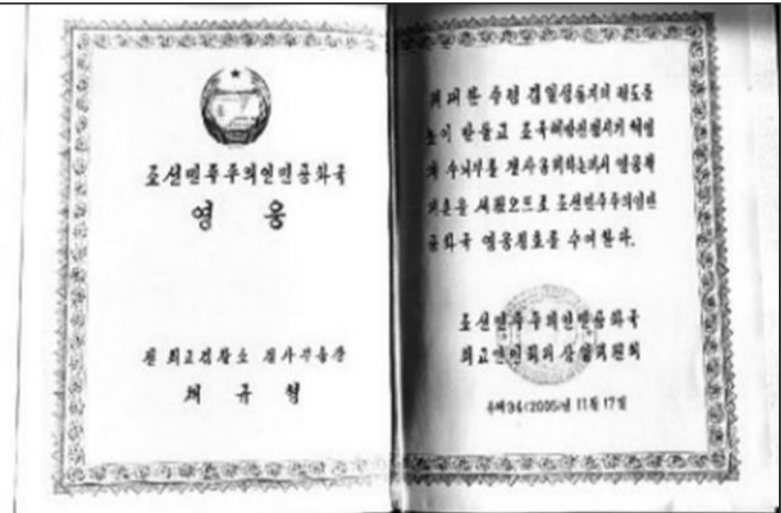 조선민주주의인민공화국
영 웅
전 최고검찰소 검사
채 규 형
위대한 수령 김일성동지의 령도를
높이 받들고 조국해방전쟁시기 혁명
의 수뇌부를 결사옹위하는데서 영웅적
위훈을 세웠으므로 조선민주주의인민
공화국 영웅칭호를 수여한다.
조선민주주의인민공화국
최고인민회의 상임위원회
주체94(2005)년 11월 17일